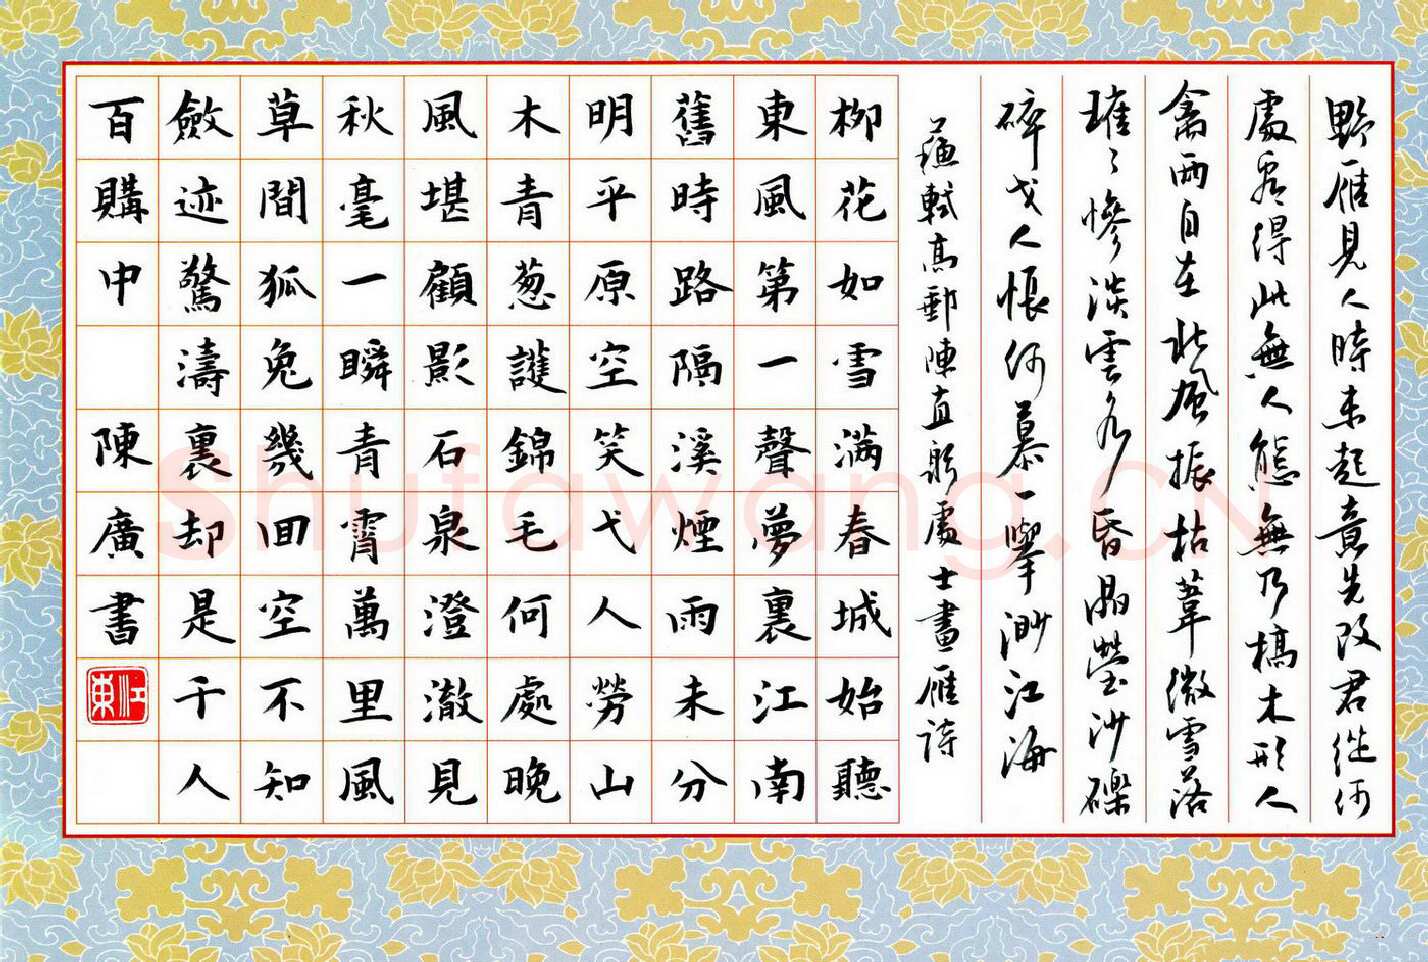 野雁見人時未起意先改君從何
處看得此無人態無乃槁木形人
禽兩自在北風振枯葦微雪落
璀璀慘淡雲水昏晶熒沙礫
碎弋人悵何慕一舉渺江海
蘇軾高郵陳直躬處士畫雁詩
柳花如雪满春城始聽
東風第一聲夢裏江南
舊時路隔溪煙雨未分
明平原空笑弋人勞山
木青葱護錦毛何處晚
風堪顧影石泉澄澈見
秋毫一瞬青霄萬里風
草間狐兔幾回空不知
斂迹驚濤裏却是千人
百購中 陳廣書
江東
Shufawang.CN